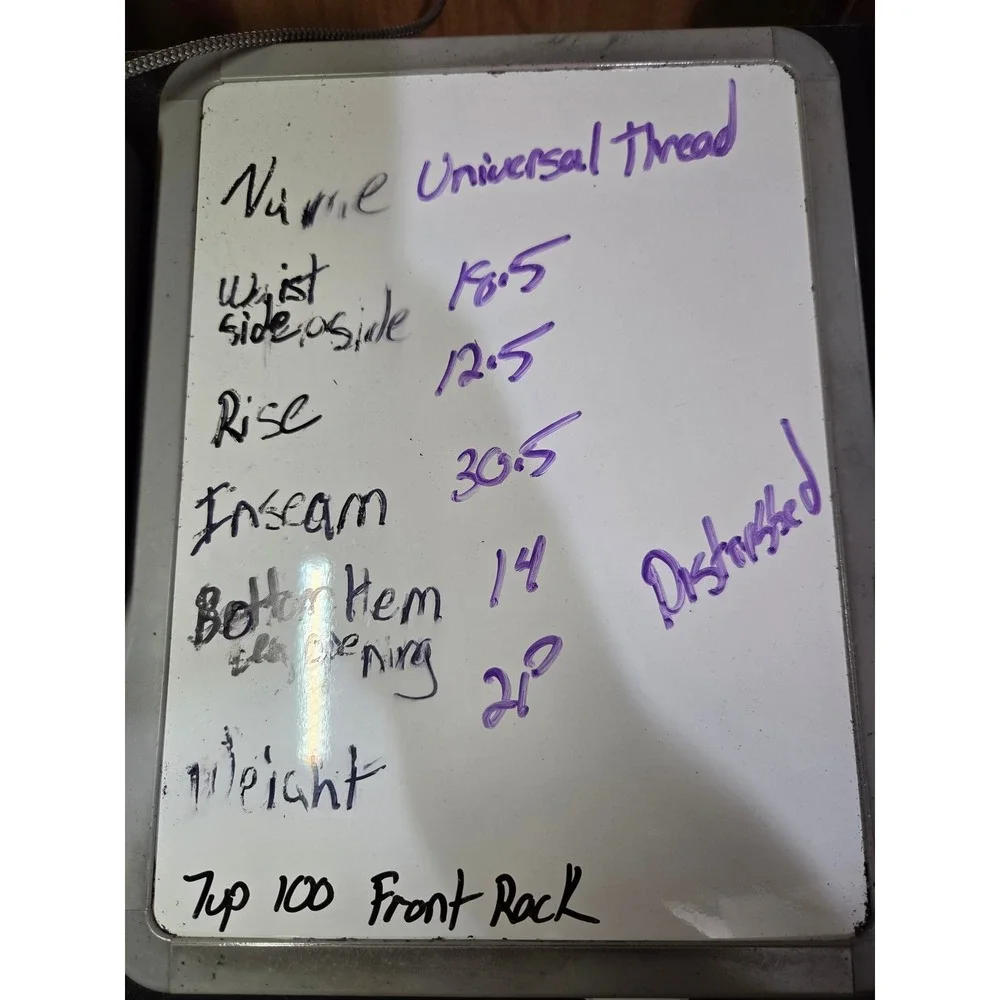 Name Universal Thread
Waist 18.5
side to side
Rise 12.5
Inseam 30.5
Bottom Hem 14
leg opening
Weight
Distressed
7up 100 Front Rack